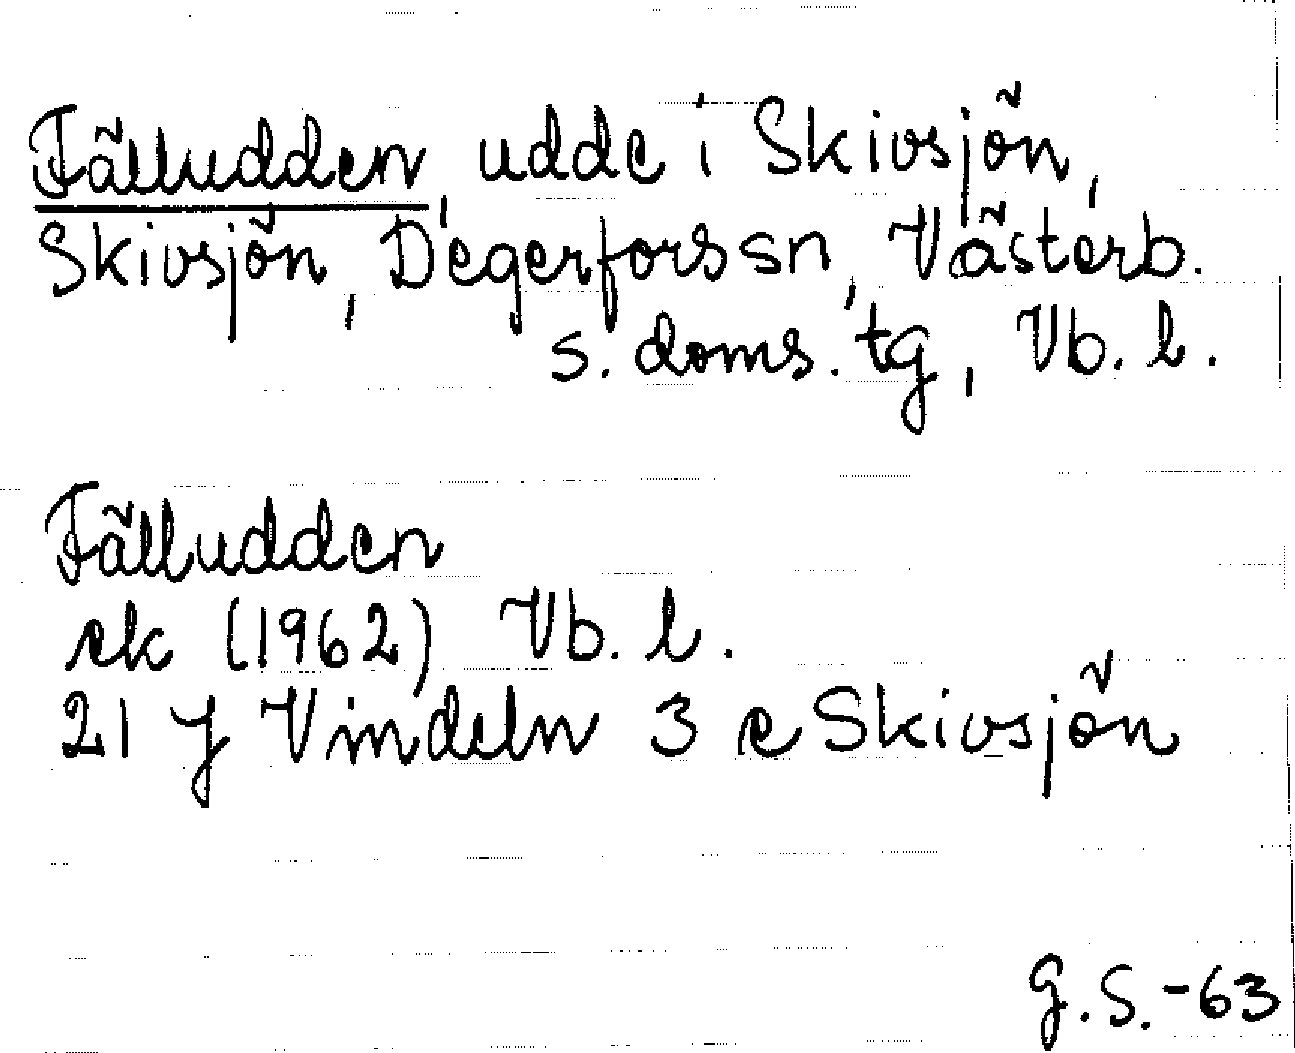 Fälludden, udde i Skivsjön,
Skivsjön, Degerfors sn, Västerb.
s. doms. tg, Vb. l.
Fälludden
ek (1962) Vb. l.
21 J Vindeln 3 e Skivsjön
G.S.-63